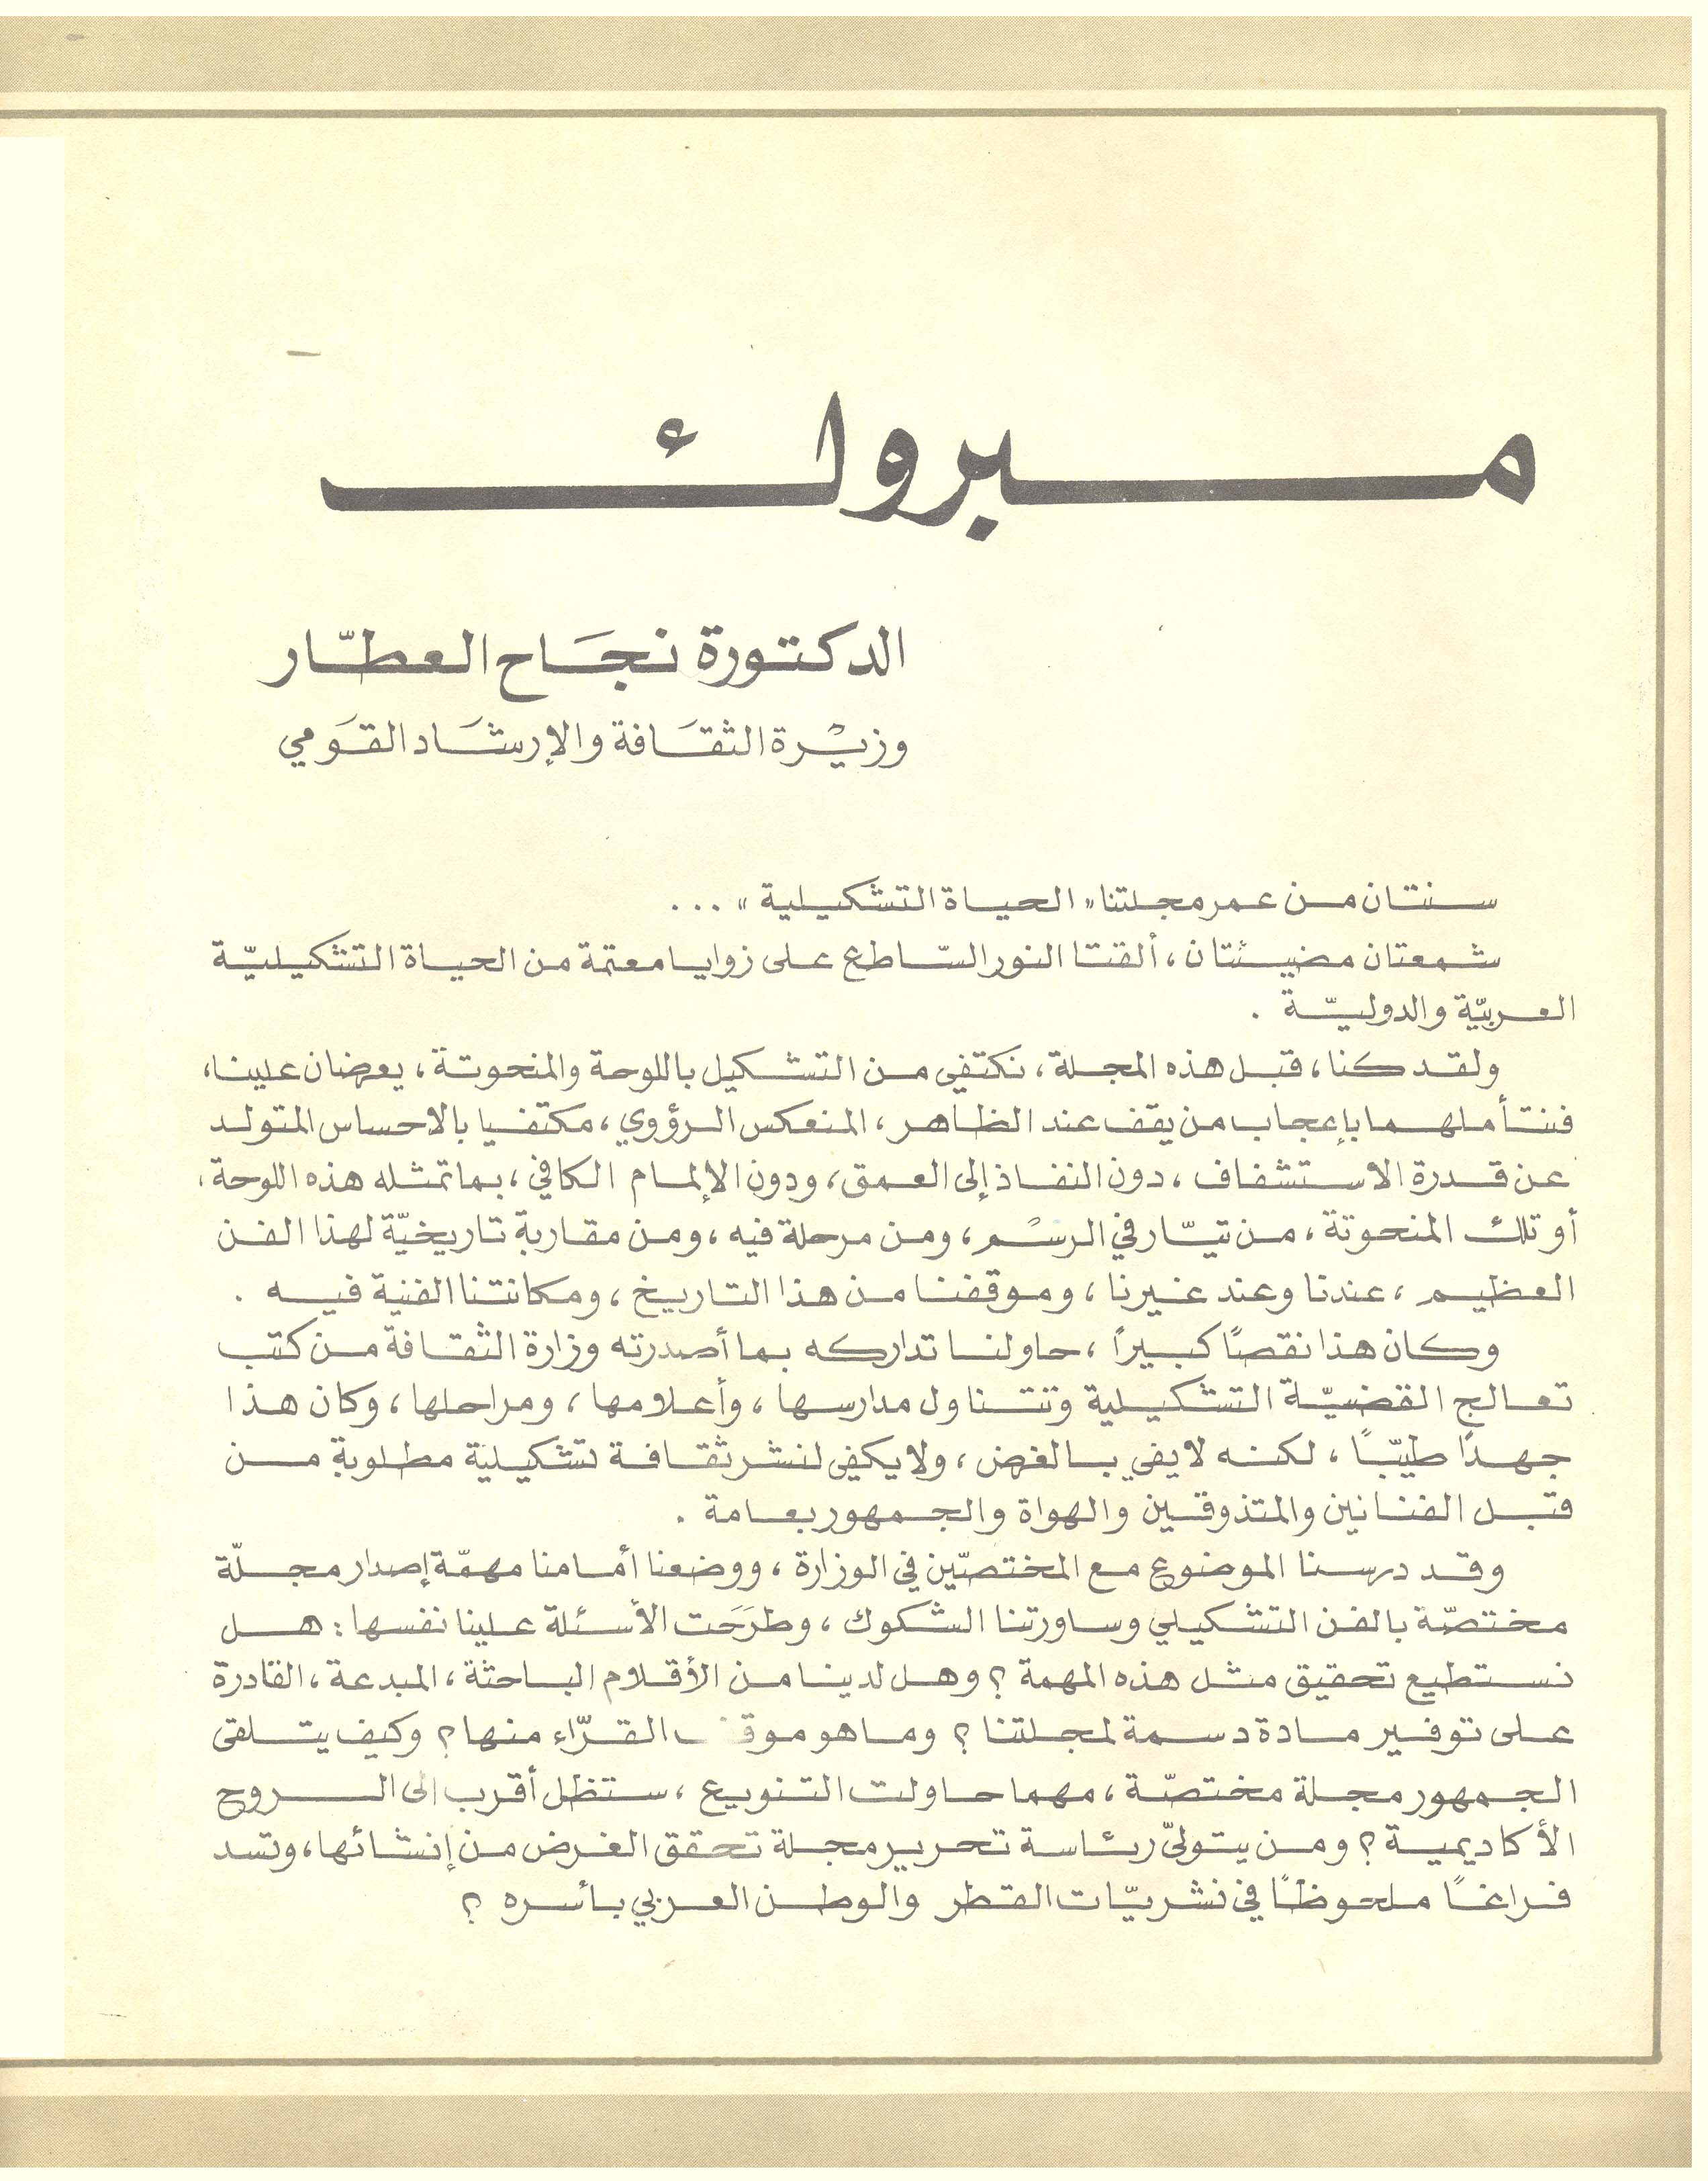 مبروك
الدكتورة نجَاح العطّار
وزيْرة الثقَافة والإرشَاد القَومي
سنتان من عمر مجلتنا « الحياة التشكيلية » ...
شمعتان مضيئتان ، ألقتا النور السّاطع على زوايا معتمة من الحياة التشكيليّة
العربيّة والدوليّة .
ولقد كنا ، قبل هذه المجلة ، نكتفي من التشكيل باللوحة والمنحوتة ، يعرضان علينا ،
فنتأملهما بإعجاب من يقف عند الظاهر ، المنعكس الرؤوي ، مكتفيا بالاحساس المتولد
عن قدرة الاستشفاف ، دون النفاذ إلى العمق ، ودون الإلمام الكافي ، بما تمثله هذه اللوحة ،
أو تلك المنحوتة ، من تيّار في الرسْم ، ومن مرحلة فيه ، ومن مقاربة تاريخيّة لهذا الفن
العظيم ، عندنا وعند غيرنا ، وموقفنا من هذا التاريخ ، ومكانتنا الفنية فيه .
وكان هذا نقصًا كبيرًا ، حاولنا تداركه بما أصدرته وزارة الثقافة من كتب
تعالج القضيّة التشكيلية وتتناول مدارسها ، وأعلامها ، ومراحلها ، وكان هذا
جهدًا طيّبًا ، لكنه لا يفي بالغرض ، ولا يكفي لنشر ثقافة تشكيلية مطلوبة من
قبل الفنانين والمتذوقين والهواة والجمهور بعامة .
وقد درسنا الموضوع مع المختصّين في الوزارة ، ووضعنا أمامنا مهمّة إصدار مجلّة
مختصّة بالفن التشكيلي وساورتنا الشكوك ، وطرَحَت الأسئلة علينا نفسها : هل
نستطيع تحقيق مثل هذه المهمة ؟ وهل لدينا من الأقلام الباحثة ، المبدعة ، القادرة
على توفير مادة دسمة لمجلتنا ؟ وما هو موقف القرّاء منها ؟ وكيف يتلقى
الجمهور مجلة مختصّة ، مهما حاولت التنويع ، ستظل أقرب إلى الروح
الأكاديمية ؟ ومن يتولىّ رئاسة تحرير مجلة تحقق الغرض من إنشائها ، وتسد
فراغًا ملحوظًا في نشريّات القطر والوطن العربي بأسره ؟